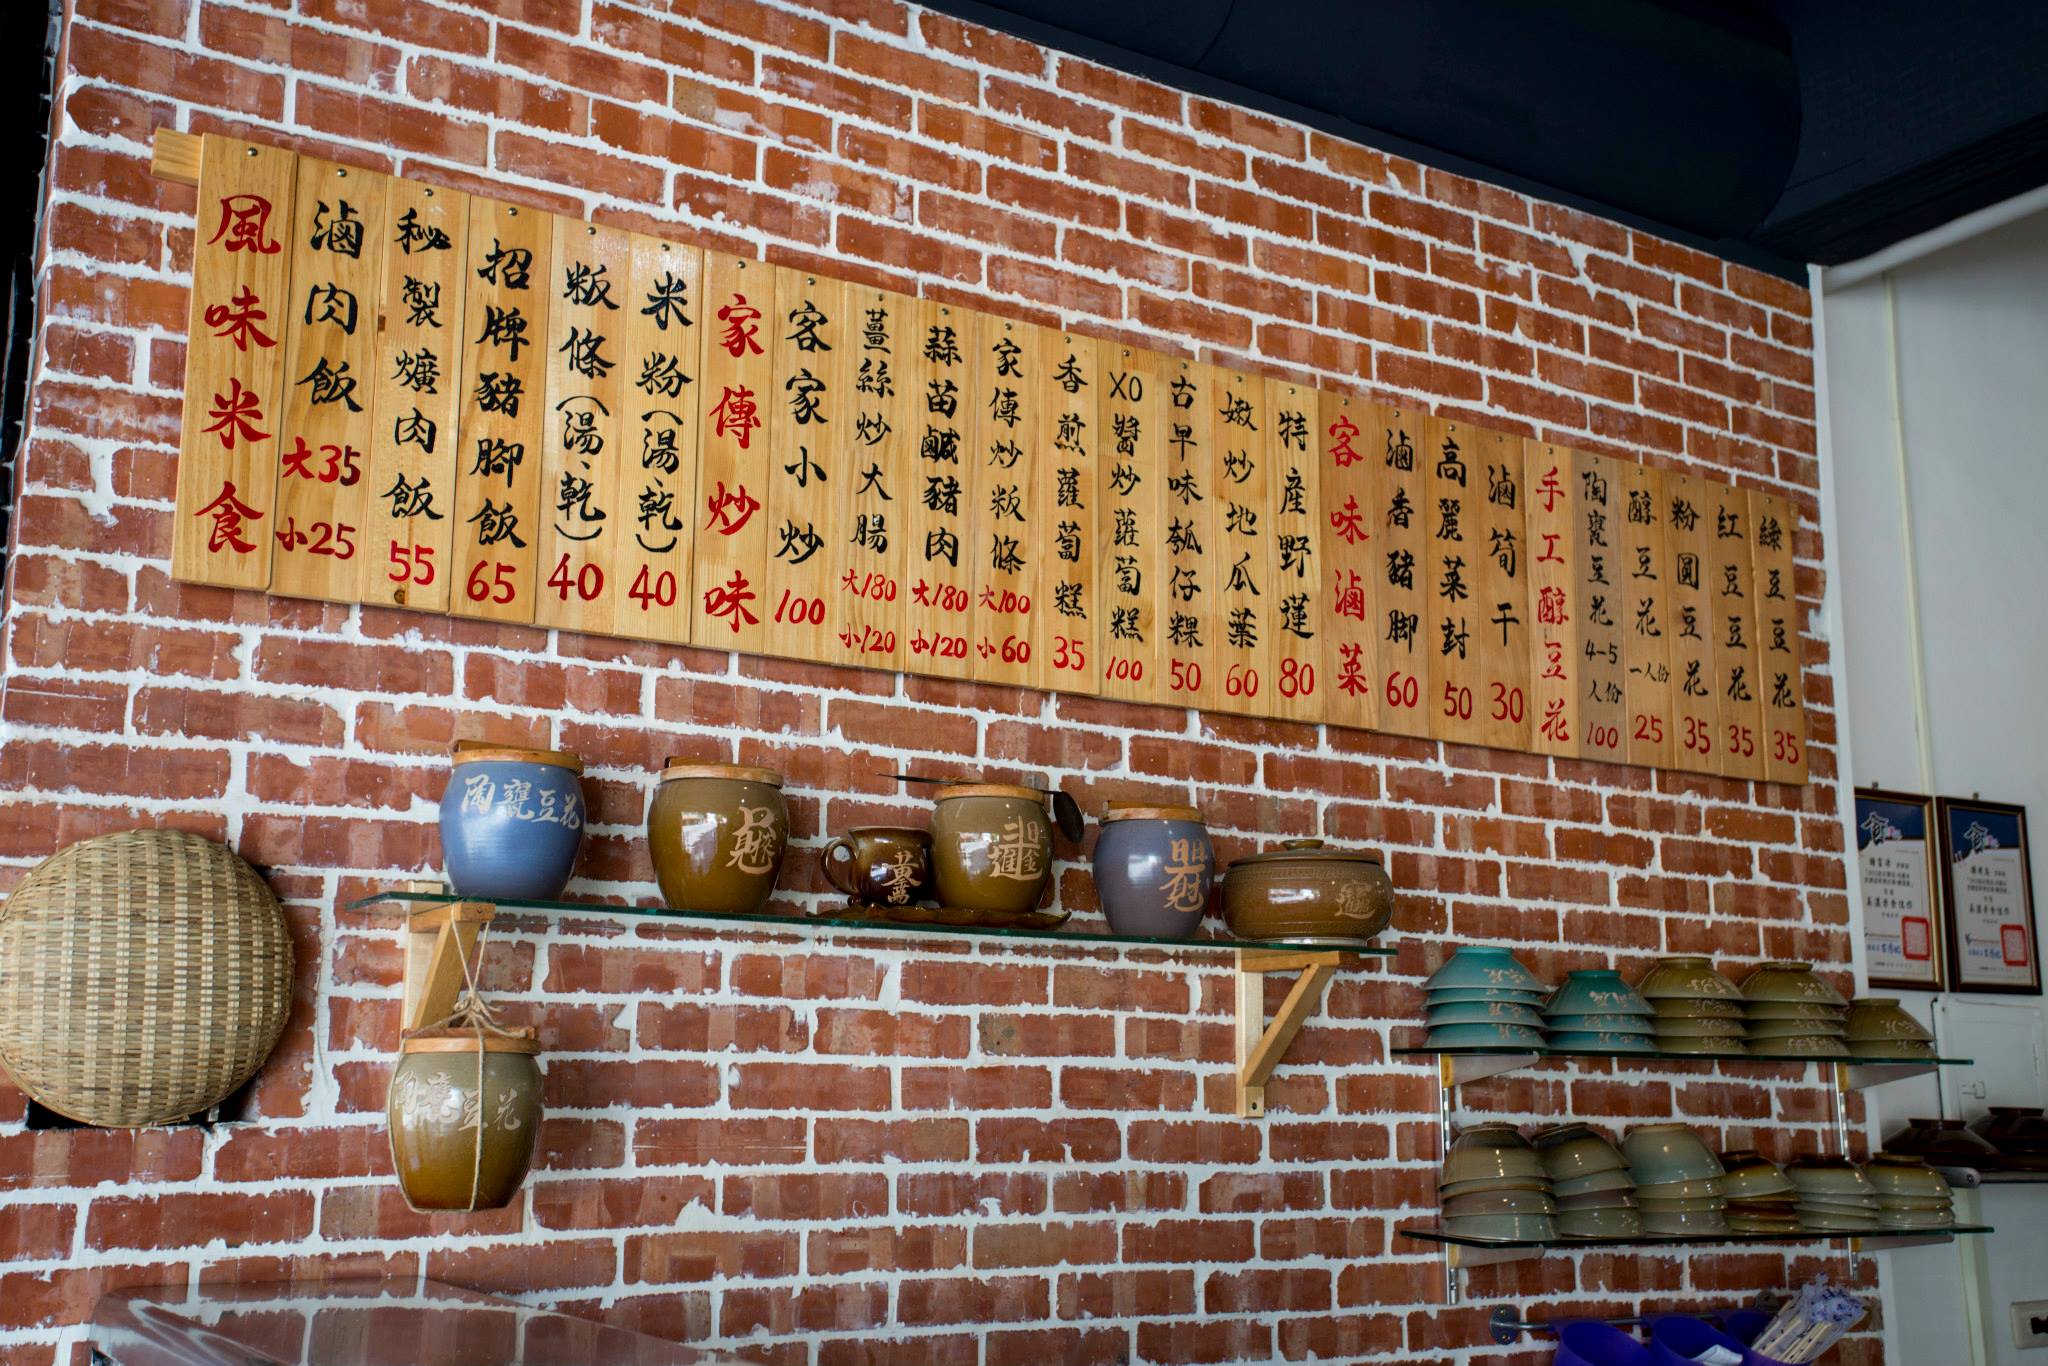 風味米食
滷肉飯 大35 小25
秘製爌肉飯 55
招牌豬腳飯 65
粄條(湯、乾) 40
米粉(湯、乾) 40
家傳炒味
客家小炒 100
薑絲炒大腸 大180 小120
蒜苗鹹豬肉 大180 小120
家傳炒粄條 大100 小60
香煎蘿蔔糕 35
XO醬炒蘿蔔糕 100
古早味瓠仔粿 50
嫩炒地瓜葉 60
特產野蓮 80
客味滷菜
滷香豬脚 60
高麗菜封 50
滷筍干 30
手工醇豆花
陶甕豆花 4-5人份 100
醇豆花 一人份 25
粉圓豆花 35
紅豆花 35
綠豆花 35
陶甕豆花
黃萬
日進
陶甕豆花